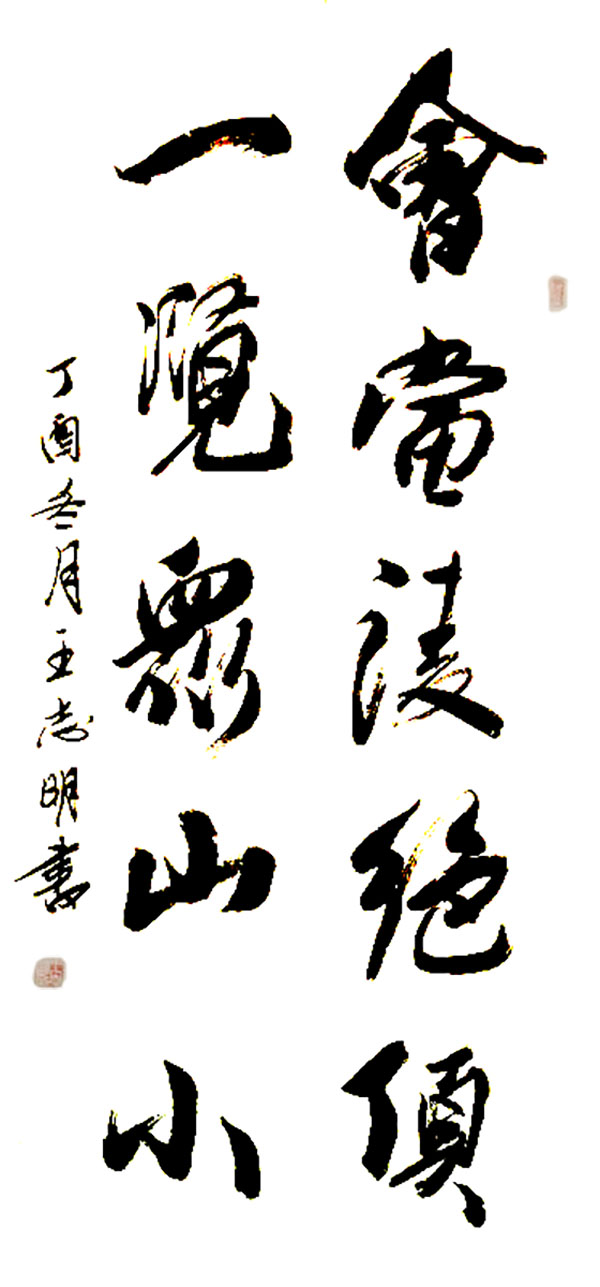 會當淩絕頂
一覽眾山小
丁酉冬月王志明書